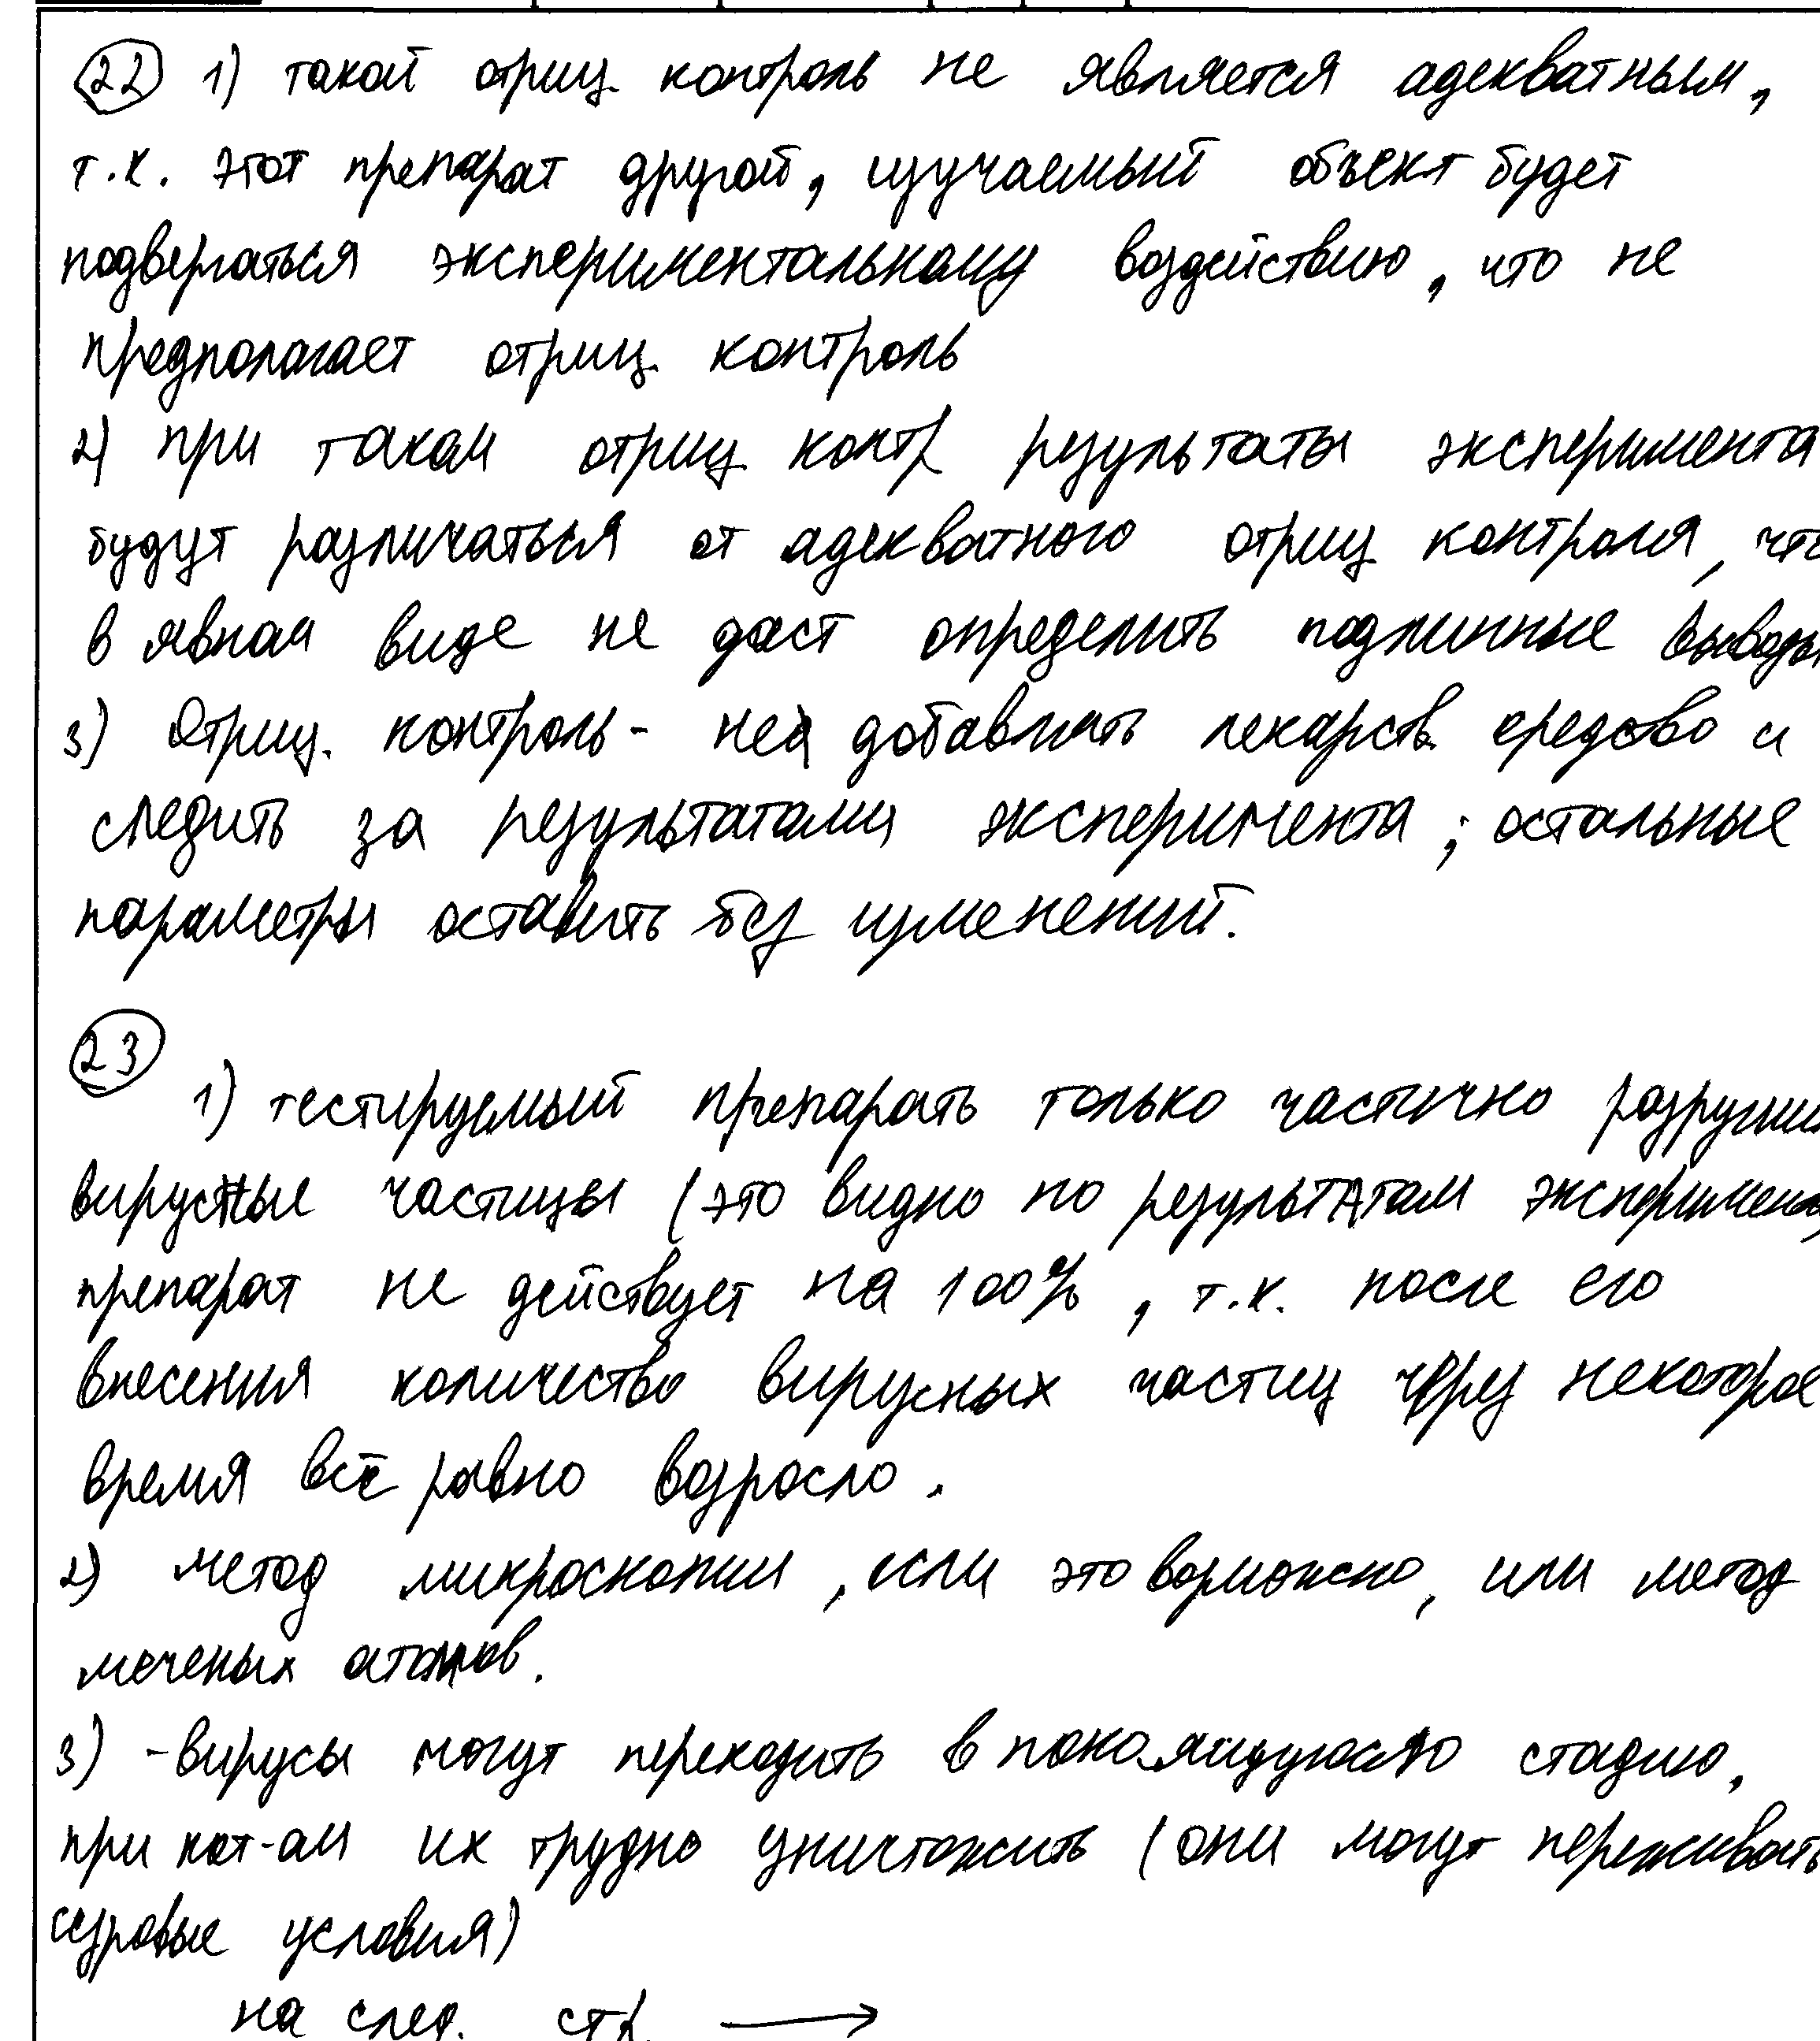 22 1) такой отриц. контроль не является адекватным,
т.к. этот препарат другой, изучаемый объект будет
подвергаться экспериментальному воздействию, что не
предполагает отриц. контроль
2) при таком отриц. контр результаты эксперимента
будут различаться от адекватного отриц контроля, что
в явном виде не даст определить подлинные выводы
3) Отриц. контроль - не добавлять лекарств. средсво и
следить за результатами эксперимента; остальные
параметры оставить без изменений.
23
1) тестируемый препарать только частично разрушил
вирусные частицы (это видно по результатам эксперимента)
препарат не действует на 100%, т.к. после его
внесения количество вирусных частиц через некоторое
время всё равно возросло.
2) метод микроскопии, если это возможно, или метод
меченых атомов.
3) -вирусы могут переходить в стадию,
при кот-ом их трудно уничтожить (они могут переживать
суровые условия)
на след. стр. →